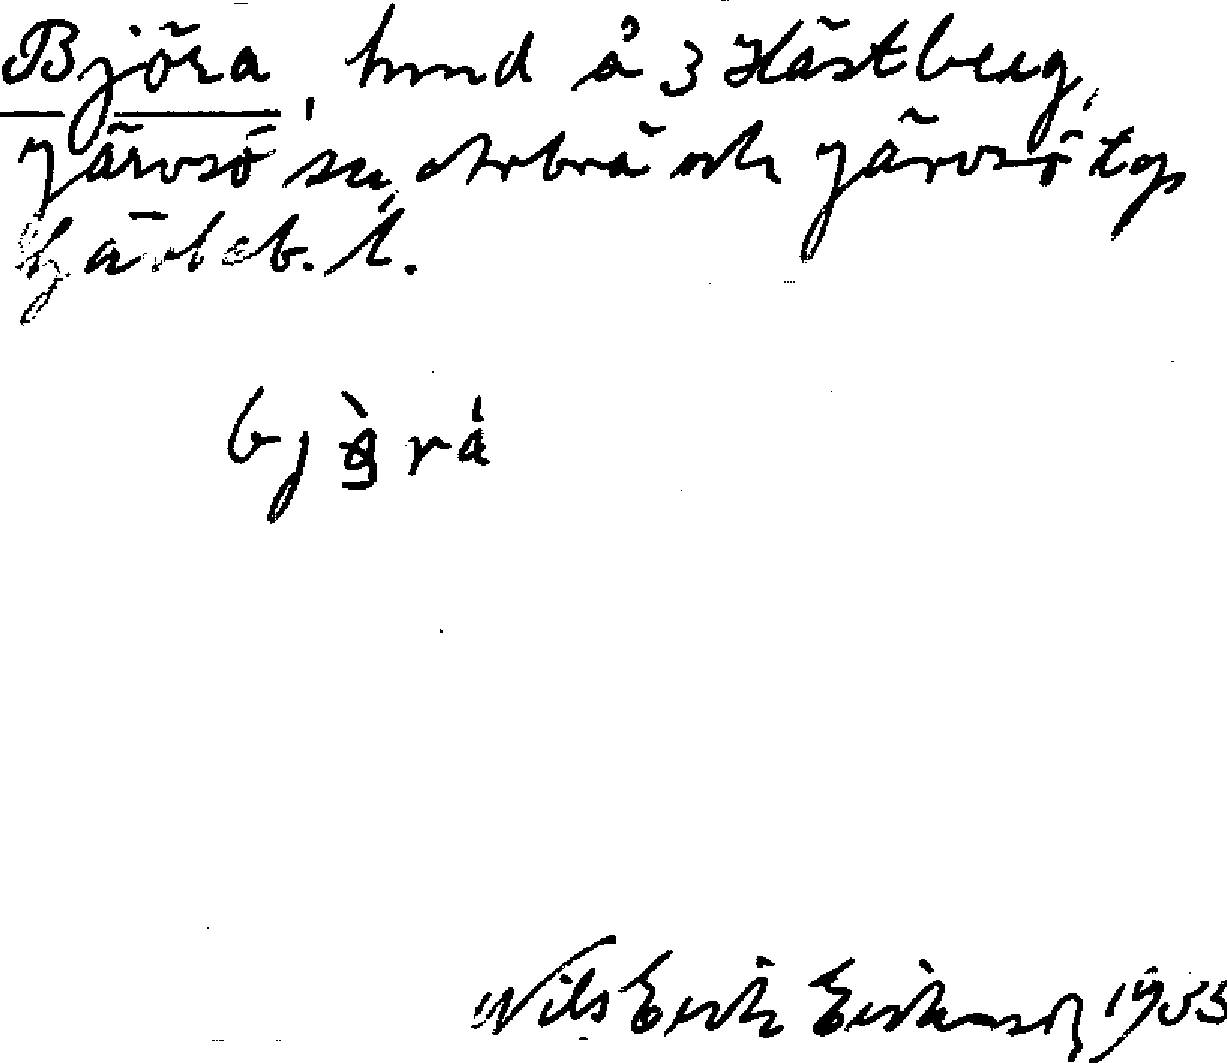 Björa, hund å 3 Hästberg,
Järvsö sn, Arbrå och Järvsö tg
Gävleb. l.
bjòrá
Nils Erik Eriksson 1933